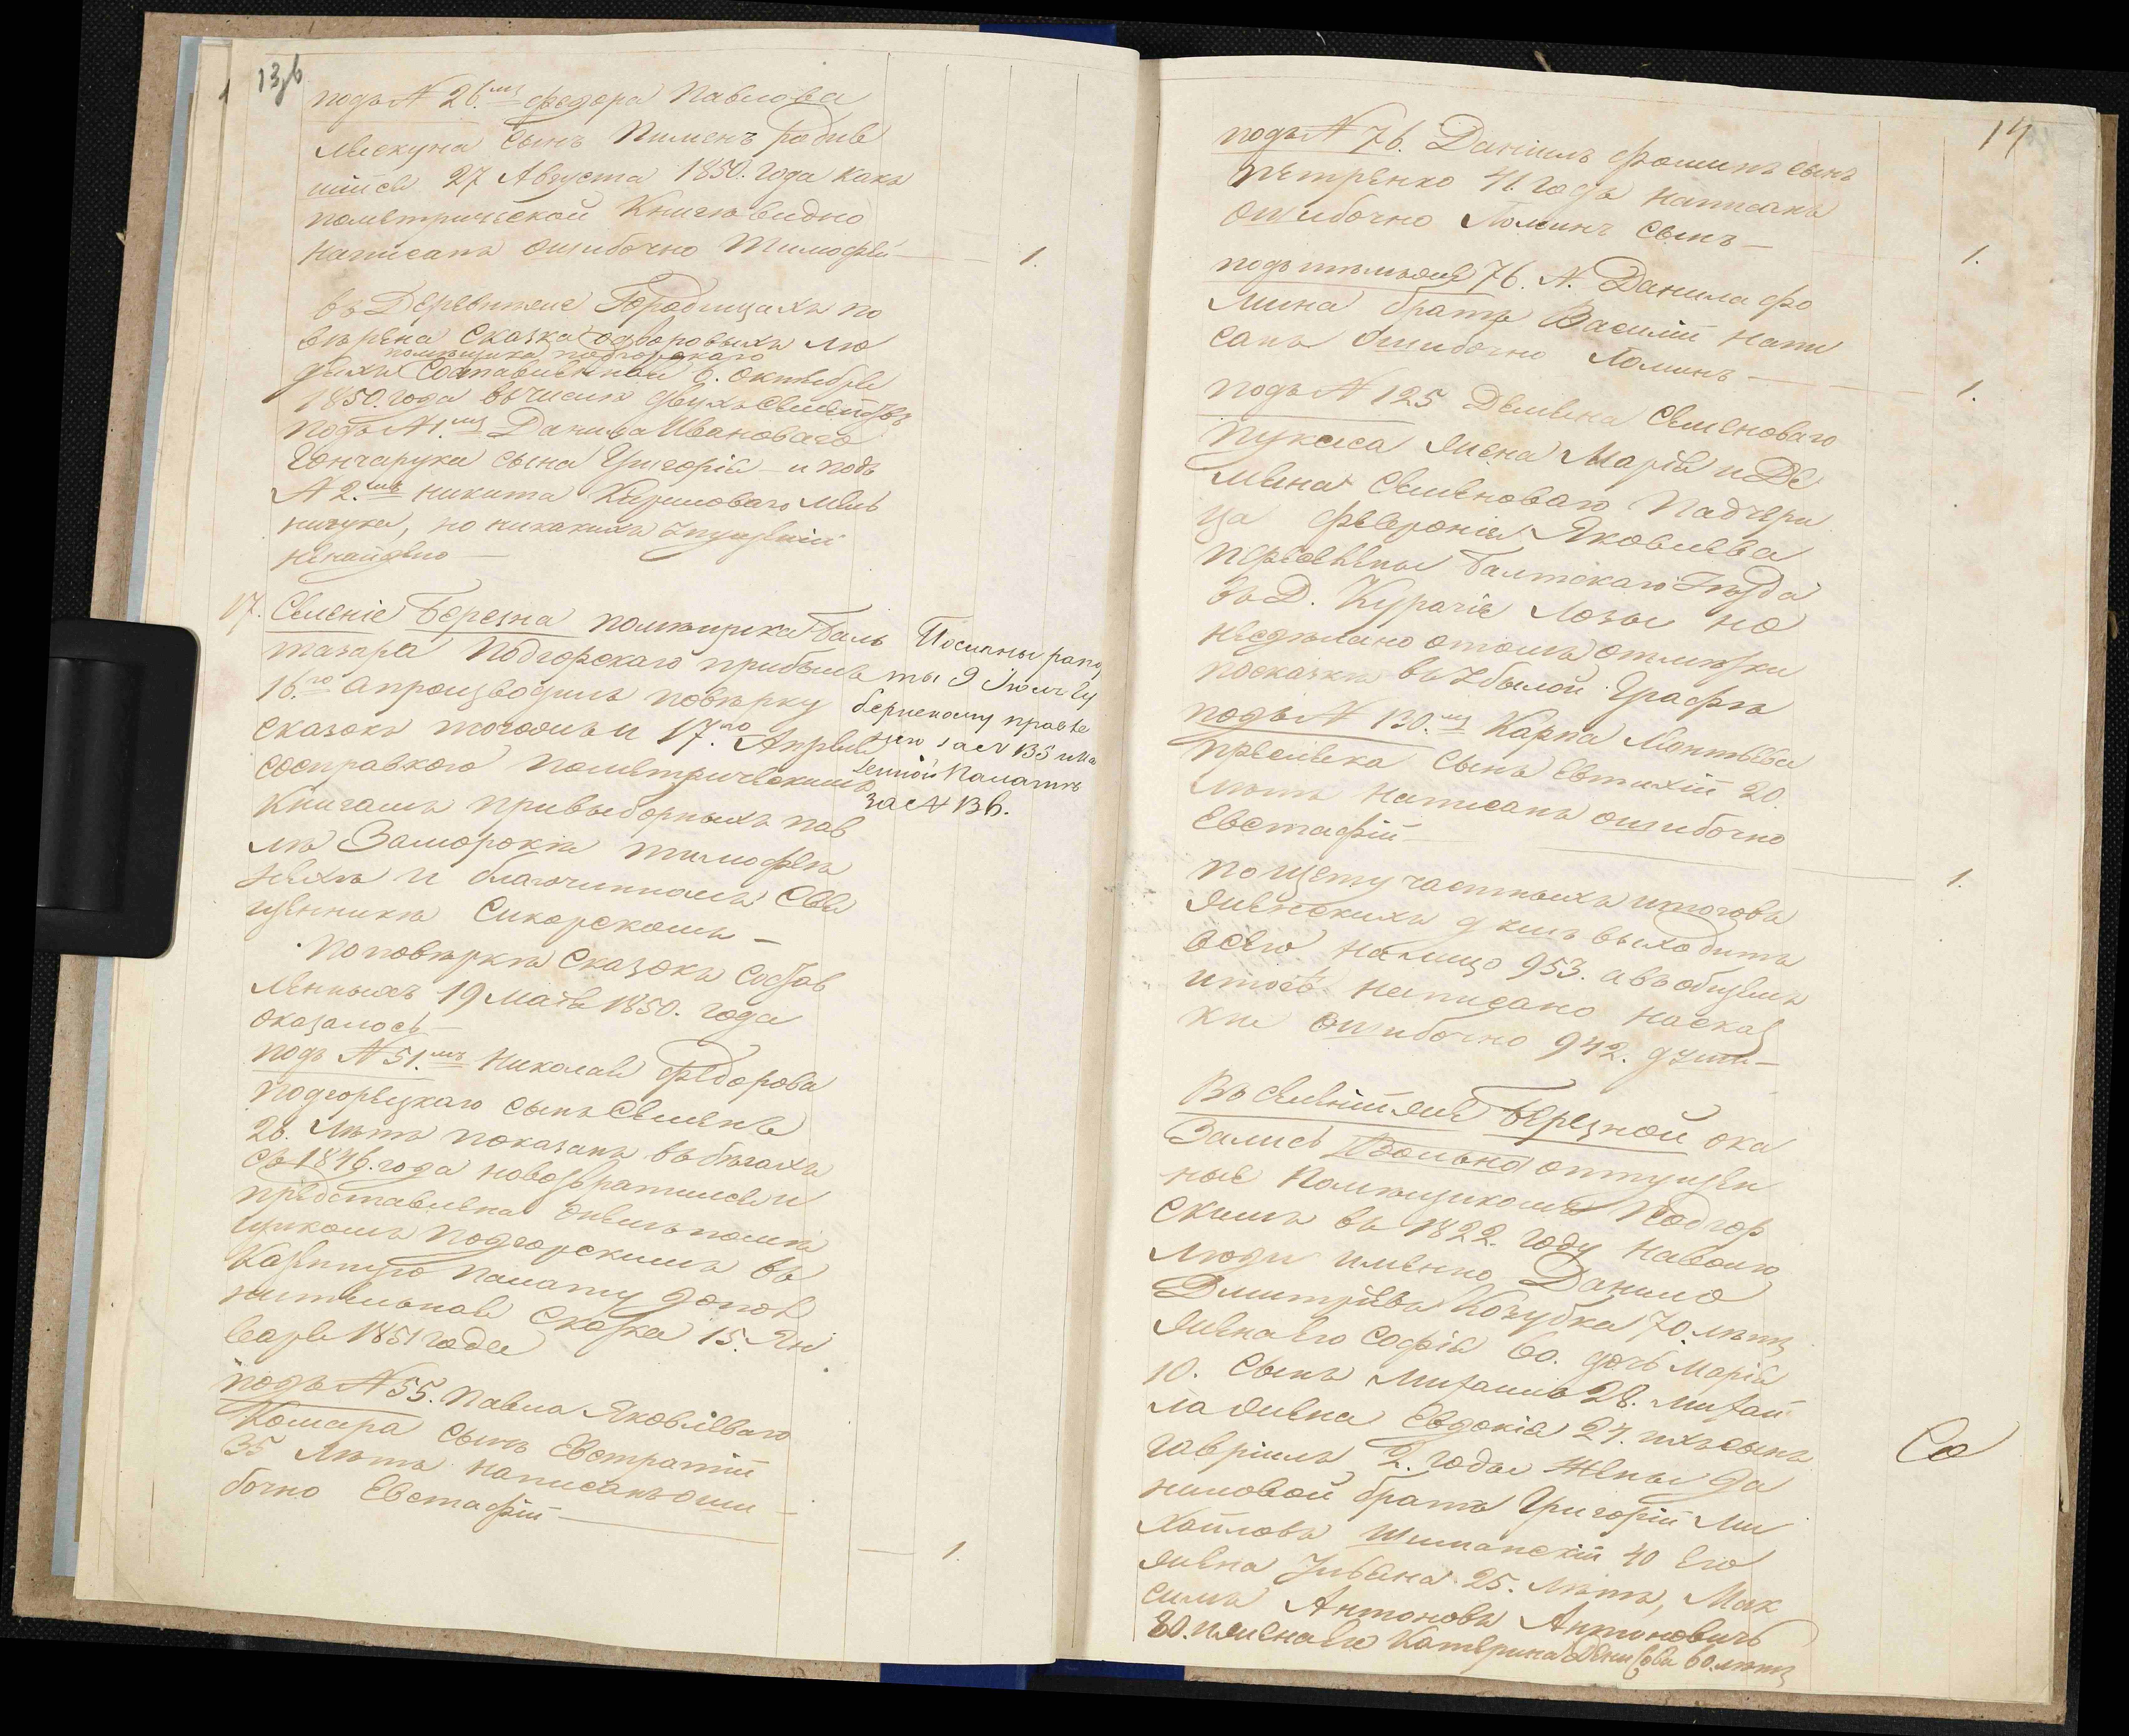 13зв
подъ N 26.мъ Федора Павлова
Лиекуна сынъ Пименъ родив
шійся 27 Августа 1850. года какъ
пометрической Книге видно
написанъ ошибочно Тимофей — 1.
въ Деревнѣже Городищахъ по
вѣрена сказка одворовыхъ лю
помѣщика подгорскаго
дяхъ Составленной 6. Октября
1850. года вчислѣ двухъ семействъ
подъ N 1.мъ Данила Ивановаго
Гончарука сына Григорія — и подъ
N 2.мъ Никита Кириловаго Мель
ничука, но никакихъ упущеній
ненайдено —
17. Селеніе Березна помѣщика Баль
тазара Подгорскаго прибылъ
16.го апроизводилъ повѣрку
сказокъ тогожъ и 17.го Апрѣля
сосправкою пометрическимъ
Книгамъ привыборныхъ пав
лѣ Заморокѣ тимофеѣ
и благочинномъ Свя
щенникѣ Сикорскомъ —
Посланы рапор
ты 9 Іюля Гу
бернскому правле
нію за N 135 и Ка
зенной Палатѣ
за N 136.
Поповѣркѣ Сказокъ Состав
ленныхъ 19 Мая 1850. года
оказалось —
подъ N 51.мъ Николая Федорова
Подгорецкаго сынъ Семенъ
26. лѣтъ показанъ вбѣгахъ
съ 1846. года новозвратился и
представлена онемъ помѣ
щикомъ Подгорскимъ въ
Казенную палату допол
нительная Сказка 15. Ян
варя 1851 года
подъ N 55. Павла Яковлеваго
Комара сынъ Евстратій
35 лѣтъ написанъ оши
бочно Евстафій — 1.
14
подъ N 76. Даніилъ Фоминъ сынъ
Петренко 41. годъ написанъ
ошибочно Ломинъ сынъ — 1.
подъ тѣмъже 76. N. Данила Фо
мина братъ Василій напи
санъ ошибочно Ломинъ — 1.
подъ N 125 Демьяна Семеноваго
жена Марія и Де
мьяна Семеноваго Падчери
ца Февронія Яковлева
Балтскаго уѣзда
въ Д. Курачіе Лозы но
несдѣлано отомъ отмѣтки
посказкѣ въ Убылой Графѣ
подъ N 130.мъ Карпа Мантѣева
сынъ Евтихій 20.
лѣтъ написанъ ошибочно
Евстафій — 1.
Пощету частныхъ итоговъ
женскихъ душъ выходитъ
всего налицо 953. авъобщемъ
итогѣ написано насказ
кѣ ошибочно 942. души —
Въ селенійже Березной ока
зались Вольно отпущен
ные помѣщикомъ Подгор
скимъ въ 1822. году наволю
люди именно Данило
Дмитріевъ Кочубка 70. лѣтъ
жена его Софія 60. дочь Марія
10. сынъ Михаилъ 28. Михай
ла жена Евдокія 27. ихъ сынъ
Гавріилъ 2. года Жены Да
ниловой братъ Григорій Ми
хайловъ Шиманскій 40 его
жена Уліана 25. лѣтъ, Мак
симъ Антоновъ Антоновичъ
80. и жена его Катерина Денисова 60. лѣтъ
Со